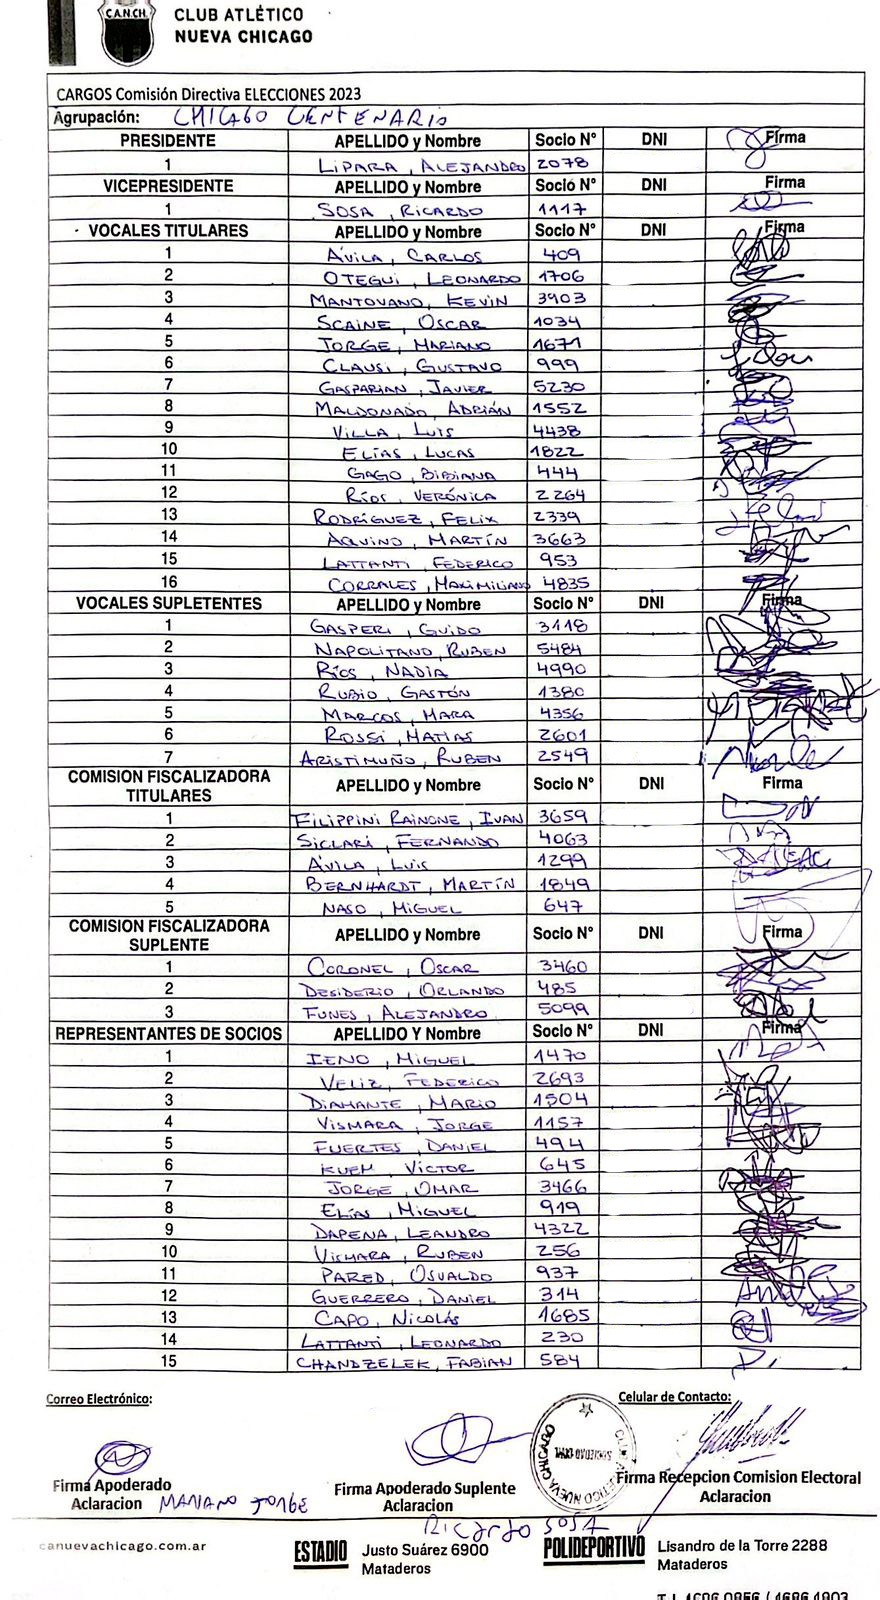 C.A.N.CH.
CLUB ATLÉTICO
NUEVA CHICAGO
CARGOS Comisión Directiva ELECCIONES 2023
Agrupación: CHICAGO CENTENARIO
PRESIDENTE APELLIDO y Nombre Socio N° DNI Firma
1 LIPARA, ALEJANDRO 2078
VICEPRESIDENTE APELLIDO y Nombre Socio N° DNI Firma
1 SOSA, RICARDO 1117
VOCALES TITULARES APELLIDO y Nombre Socio N° DNI Firma
1 ÁVILA, CARLOS 409
2 OTEGUI, LEONARDO 1706
3 MANTOVANO, KEVIN 3903
4 SCAINE, OSCAR 1034
5 JORGE, MARIANO 1671
6 CLAUSI, GUSTAVO 999
7 GASPARIAN, JAVIER 5230
8 MALDONADO, ADRIÁN 1552
9 VILLA, LUIS 4438
10 ELÍAS, LUCAS 1822
11 GAGO, BIBIANA 444
12 RÍOS, VERÓNICA 2264
13 RODRÍGUEZ, FELIX 2339
14 AQUINO, MARTÍN 3663
15 LATTANTI, FEDERICO 953
16 CORRALES, MAXIMILIANO 4835
VOCALES SUPLETENTES APELLIDO y Nombre Socio N° DNI Firma
1 GASPERI, GUIDO 3118
2 NAPOLITANO, RUBEN 5484
3 RÍOS, NADIA 4990
4 RUBIO, GASTÓN 1380
5 MARCOS, MARA 4356
6 ROSSI, MATIAS 2601
7 ARISTIMUÑO, RUBEN 2549
COMISION FISCALIZADORA
TITULARES APELLIDO y Nombre Socio N° DNI Firma
1 FILIPPINI RAINONE, IVAN 3659
2 SICLARI, FERNANDO 4063
3 ÁVILA, LUIS 1299
4 BERNHARDT, MARTÍN 1849
5 NASO, MIGUEL 647
COMISION FISCALIZADORA
SUPLENTE APELLIDO y Nombre Socio N° DNI Firma
1 CORONEL, OSCAR 3460
2 DESIDERIO, ORLANDO 485
3 FUNES, ALEJANDRO 5099
REPRESENTANTES DE SOCIOS APELLIDO Y Nombre Socio N° DNI Firma
1 IENO, MIGUEL 1470
2 VELIZ, FEDERICO 2693
3 DIAMANTE, MARIO 1504
4 VISMARA, JORGE 1157
5 FUERTES, DANIEL 494
6 KUEM, VICTOR 645
7 JORGE, OMAR 3466
8 ELÍAS, MIGUEL 919
9 DAPENA, LEANDRO 4322
10 VISMARA, RUBEN 256
11 PARED, OSVALDO 937
12 GUERRERO, DANIEL 314
13 CAPO, NICOLÁS 1685
14 LATTANTI, LEONARDO 230
15 CHANDZELEK, FABIAN 584
Correo Electrónico: Celular de Contacto:
CLUB ATLETICO NUEVA CHICAGO
SOCIEDAD CIVIL
Firma Apoderado Firma Apoderado Suplente Firma Recepcion Comision Electoral
Aclaracion MARIANO JORGE Aclaracion Aclaracion
RICARDO SOSA
canuevachicago.com.ar ESTADIO Justo Suárez 6900 POLIDEPORTIVO Lisandro de la Torre 2288
Mataderos Mataderos